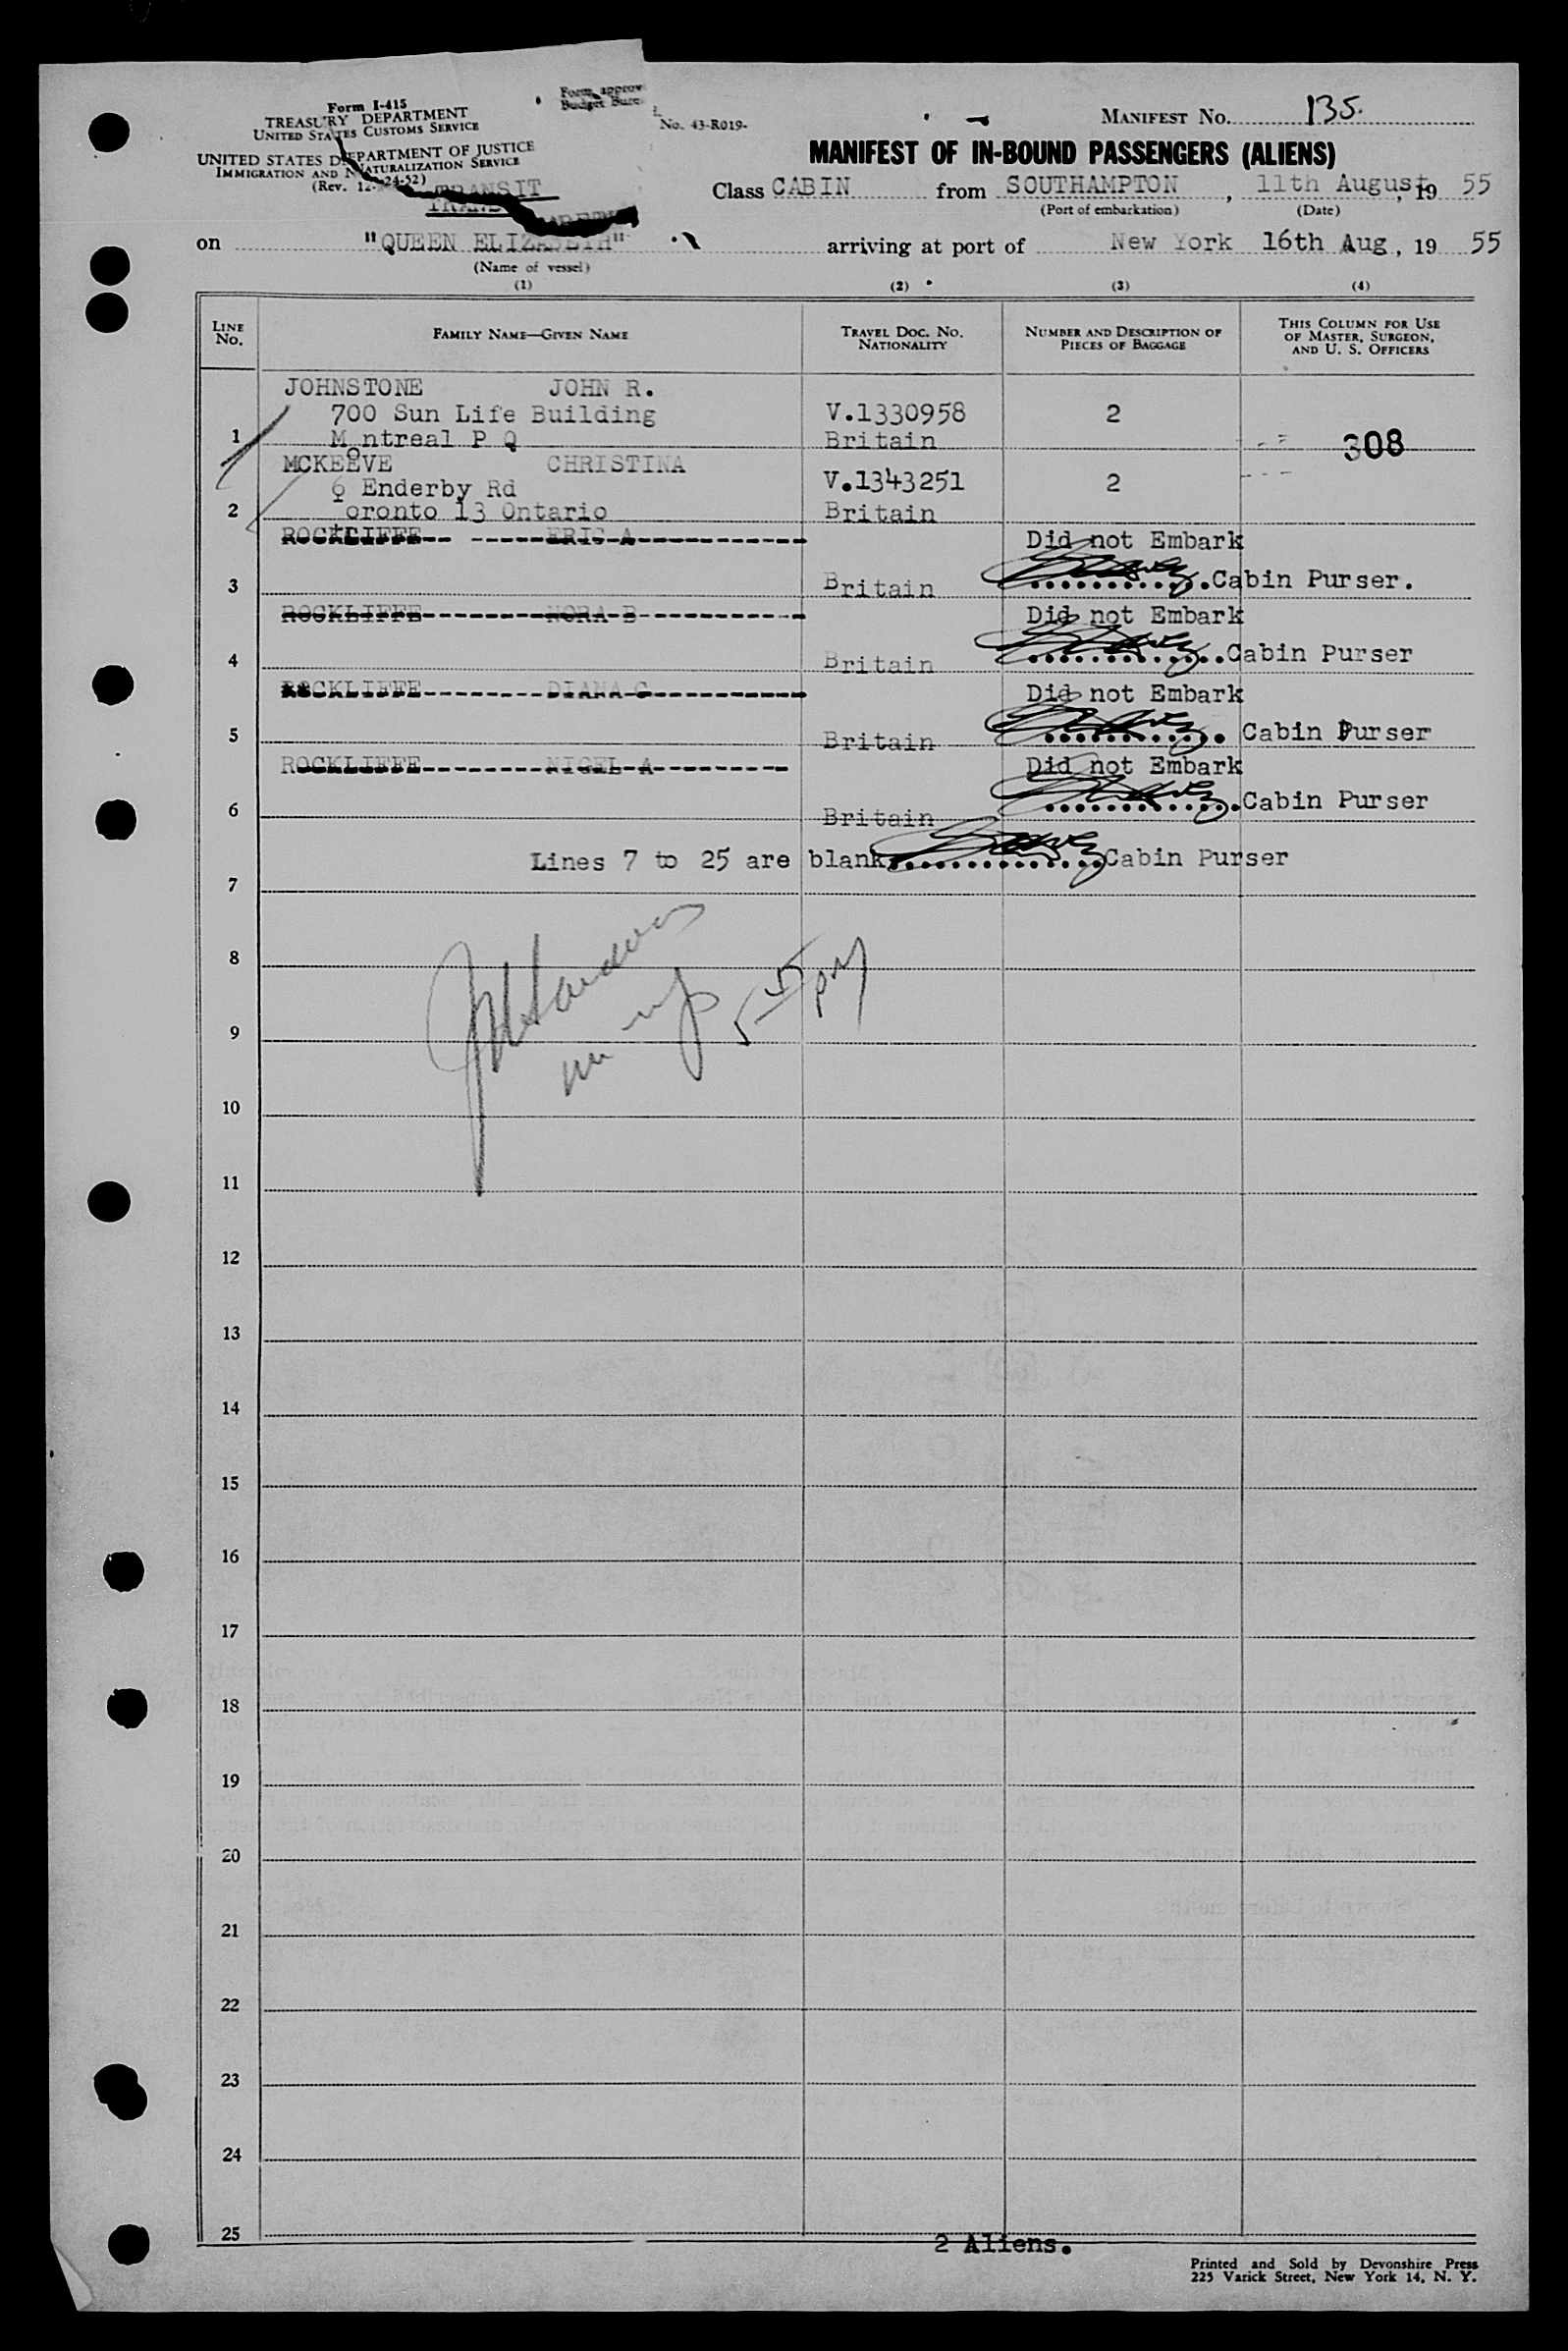 Form I-415
TREASURY DEPARTMENT
UNITED STATES CUSTOMS SERVICE
UNITED STATES DEPARTMENT OF JUSTICE
IMMIGRATION AND NATURALIZATION SERVICE
(Rev. 12-24-52)
Form approv
Budget Bure
No. 43-R019-
TRANSIT
MANIFEST NO. 135.
MANIFEST OF IN-BOUND PASSENGERS (ALIENS)
Class CABIN from SOUTHAMPTON, 11th August, 19 55
(Port of embarkation) (Date)
on "QUEEN ELIZABETH" arriving at port of New York 16th Aug, 19 55
(Name of vessel)
(1) (2) (3) (4)
LINE No. FAMILY NAME—GIVEN NAME TRAVEL DOC. NO. NATIONALITY NUMBER AND DESCRIPTION OF PIECES OF BAGGAGE THIS COLUMN FOR USE OF MASTER, SURGEON, AND U. S. OFFICERS
JOHNSTONE JOHN R.
700 Sun Life Building V.1330958 2
1 Montreal P Q Britain 308
MCKEEVE CHRISTINA
9 Enderby Rd V.1343251 2
2 toronto 13 Ontario Britain
ROCKLIFFE ERIC A Did not Embark
3 Britain Cabin Purser.
ROCKLIFFE NORA B Did not Embark
4 Britain Cabin Purser
ROCKLIFFE DIANA C Did not Embark
5 Britain Cabin Purser
ROCKLIFFE NIGEL A Did not Embark
6 Britain Cabin Purser
Lines 7 to 25 are blank Cabin Purser
7
8
9
5 45 pm
10
11
12
13
14
15
16
17
18
19
20
21
22
23
24
25
2 Aliens.
Printed and Sold by Devonshire Press
225 Varick Street, New York 14, N. Y.